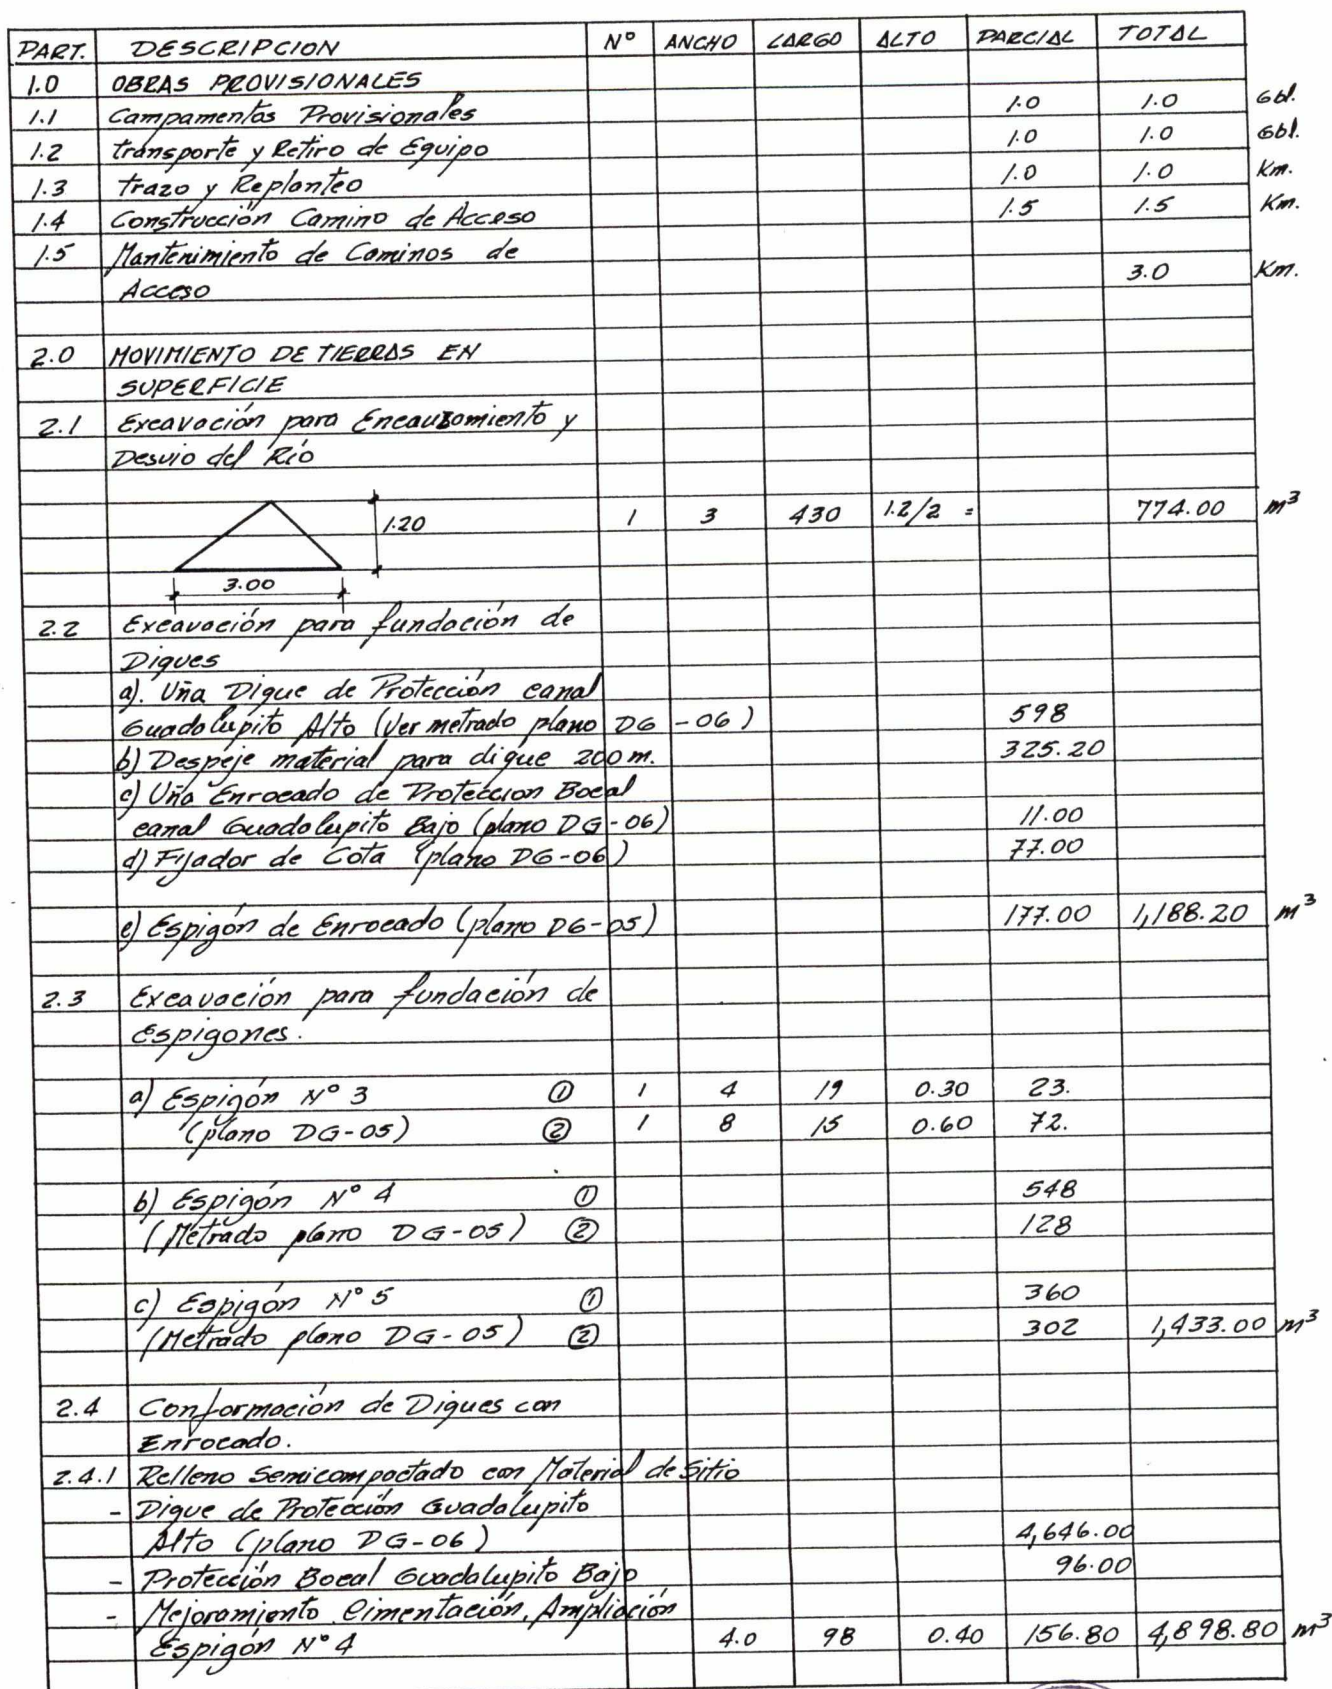 PART. DESCRIPCION N° ANCHO LARGO ALTO PARCIAL TOTAL
1.0 OBRAS PROVISIONALES
1.1 Campamentos Provisionales 1.0 1.0 Gbl.
1.2 transporte y Retiro de Equipo 1.0 1.0 Gbl.
1.3 trazo y Replanteo 1.0 1.0 Km.
1.4 Construcción Camino de Acceso 1.5 1.5 Km.
1.5 Mantenimiento de Caminos de
Acceso 3.0 Km.
2.0 MOVIMIENTO DE TIERRAS EN
SUPERFICIE
2.1 Excavación para Encauzamiento y
Desvio del Río
1.20 1 3 430 1.2/2 = 774.00 m³
3.00
2.2 Excavación para fundación de
Diques
a). Uña Dique de Protección canal
Guadalupito Alto (Ver metrado plano DG-06) 598
b) Despeje material para dique 200 m. 325.20
c) Uña Enrocado de Proteccion Bocal
canal Guadalupito Bajo (plano DG-06) 11.00
d) Fijador de Cota (plano DG-06) 77.00
e) Espigón de Enrocado (plano DG-05) 177.00 1,188.20 m³
2.3 Excavación para fundación de
Espigones.
a) Espigón N° 3 ① 1 4 19 0.30 23.
(plano DG-05) ② 1 8 15 0.60 72.
b) Espigón N° 4 ① 548
(Metrado plano DG-05) ② 128
c) Espigón N° 5 ① 360
(Metrado plano DG-05) ② 302 1,433.00 m³
2.4 Conformación de Diques con
Enrocado.
2.4.1 Relleno Semicompactado con Material de Sitio
- Dique de Protección Guadalupito
Alto (plano DG-06) 4,646.00
- Protección Bocal Guadalupito Bajo 96.00
- Mejoramiento Cimentación, Ampliación
Espigón N° 4 4.0 98 0.40 156.80 4,898.80 m³